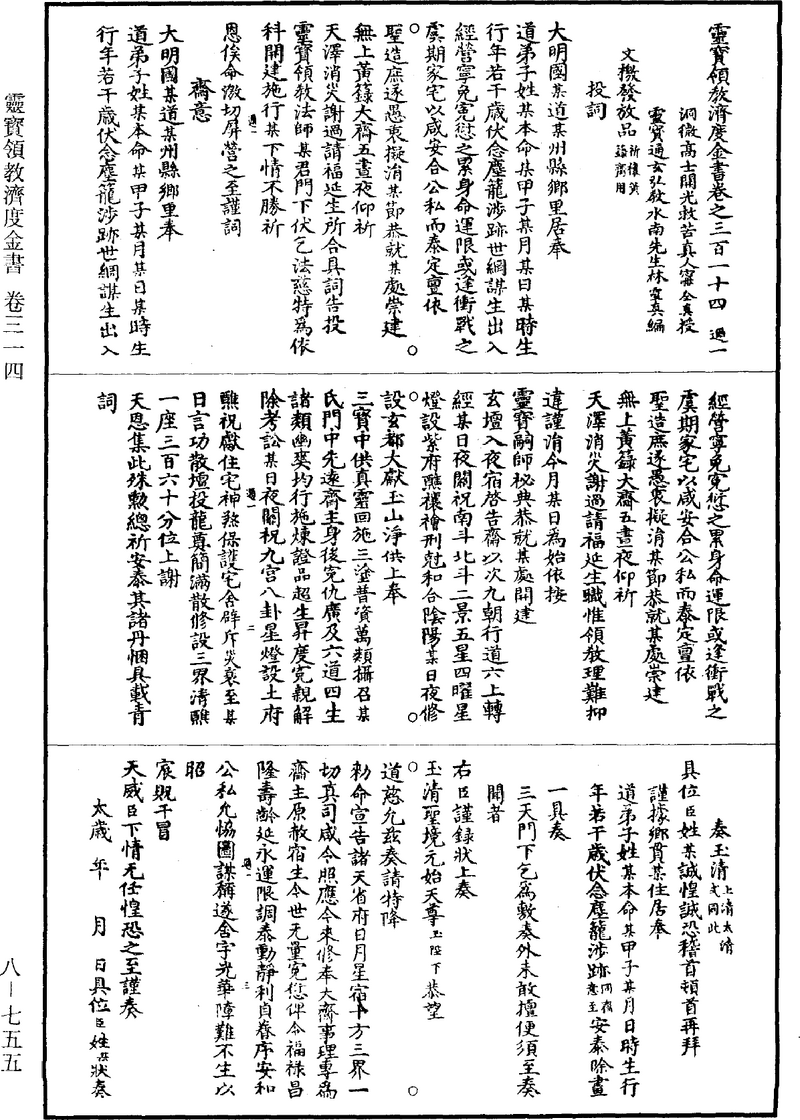 靈寶領教濟度金書卷之三百一十四 過一
洞微高士開光救苦真人甯全真授
靈寶通玄弘教水南先生林靈真編
文檄發放品 祈禳黃籙齋用
投詞
大明國某道某州縣鄉里居奉
道弟子姓某本命某甲子某月某日某時生
行年若干歲伏念塵籠涉跡世網謀生出入
經營寧免寃愆之累身命運限或逢衝戰之
虞期家宅以咸安合公私而泰定亶依
聖造庶遂愚衷擬涓某節恭就某處崇建
無上黃籙大齋五晝夜仰祈
天澤消災謝過請福延生所合具詞告投
靈寶領教法師某君門下伏乞法慈特為依
科開建施行某下情不勝祈
恩俟命激切屏營之至謹詞
齋意
大明國某道某州縣鄉里奉
道弟子姓某本命某甲子某月某日某時生
行年若干歲伏念塵籠涉跡世網謀生出入
經營寧免寃愆之累身命運限或逢衝戰之
虞期家宅以咸安合公私而泰定亶依
聖造庶遂愚衷擬涓某節恭就某處崇建
無上黃籙大齋五晝夜仰祈
天澤消災謝過請福延生職惟領教理難抑
違謹涓今月某日為始依按
靈寶嗣師秘典恭就某處開建
玄壇入夜宿啓告齋以次九朝行道六上轉
經某日夜關祝南斗北斗二景五星四曜星
燈設紫府醮禳禬刑尅和合陰陽某日夜修
設玄都大獻玉山淨供上奉
三寶中供真靈回施三塗普資萬類攝召某
氏門中先遠齋主身後寃仇廣及六道四生
諸類幽爽均行施煉證品超生昇度寃親解
除考訟某日夜關祝九宮八卦星燈設土府
醮祝獻住宅神煞保護宅舍辟斥災衰至某
日言功散壇投龍奠簡滿散修設三界清醮
一座三百六十分位上謝
天恩集此殊勳總祈安泰其諸丹悃具載青
詞
奏玉清 上清太清文同此
具位臣姓某誠惶誠恐稽首頓首再拜
謹據鄉貫某住居奉
道弟子姓某本命某甲子某月日時生行
年若干歲伏念塵籠涉跡 同前意至 安泰除畫
一具奏
三天門下乞為敷奏外未敢擅便須至奏
聞者
右臣謹錄狀上奏
玉清聖境元始天尊玉陛下恭望
道慈允茲奏請特降
勑命宣告諸天省府日月星宿十方三界一
切真司咸令照應今來修奉大齋事理專為
齋主原赦宿生今世无量寃愆俾令福祿昌
隆壽齡延永運限調泰動靜利貞眷序安和
公私允恊圖謀稱遂舍宇光華障難不生以
昭
宸貺干冒
天威臣下情无任惶恐之至謹奏
太歲 年 月 日具位臣姓某狀奏
靈寶領教濟度金書 卷三一四
八—七五五